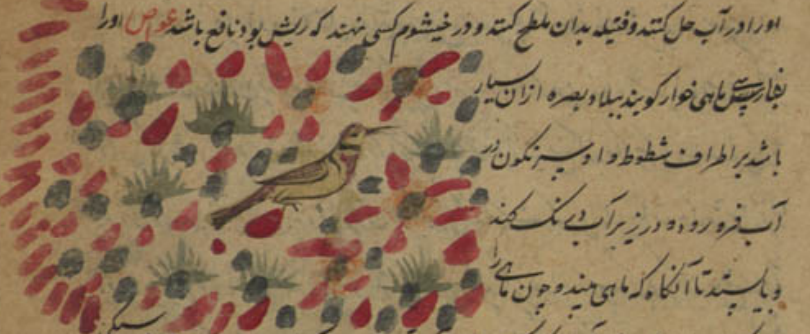 اورا در آب حل کنند و فتیله بدان ملطخ کنند و در خیشوم کسی نهند که ریش بود نافع باشد غواص اورا
بفارسی ماهی خوار کویند ببلاد بصره ازان بسیار
باشد بر اطراف شطوط و او سرنکون در
آب فرو رود و در زیر آب درنک کند
و بایستد تا آنکاه که ماهی بیند و چون ماهی را